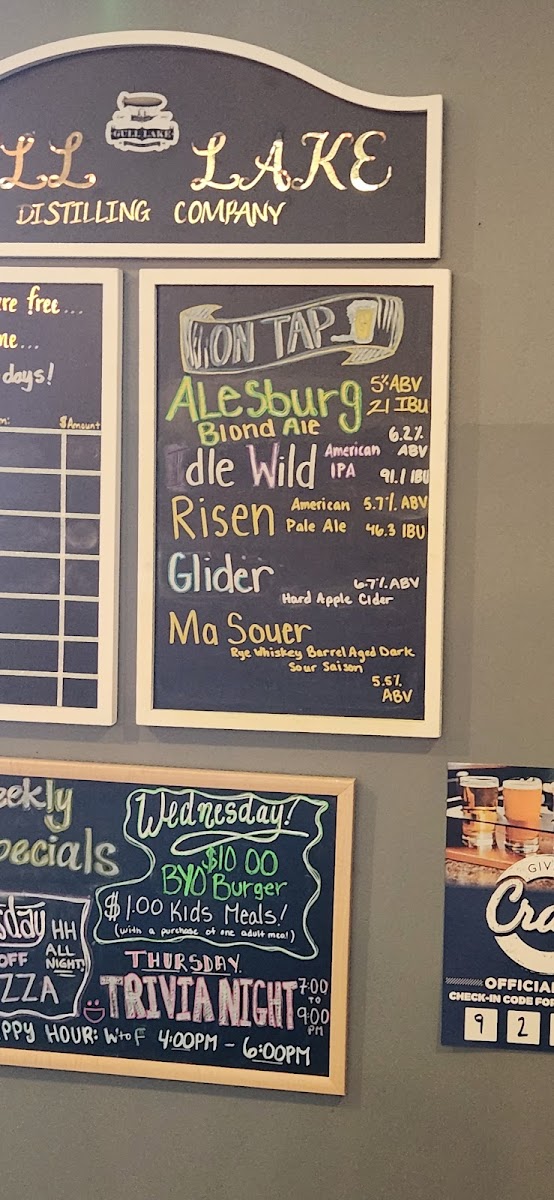 GULL LAKE
LL LAKE
DISTILLING COMPANY
re free...
me...
days!
$ Amount
ON TAP
ALesburg 5% ABV
Blond Ale 21 IBU
Idle Wild American IPA 6.2% ABV
91.1 IBU
Risen American Pale Ale 5.7% ABV
46.3 IBU
Glider 6.7% ABV
Hard Apple Cider
Ma Souer
Rye Whiskey Barrel Aged Dark
Sour Saison
5.5%
ABV
eekly
pecials
sday HH
OFF ALL
ZZA NIGHT!
Wednesday!
$10.00
BYO Burger
$1.00 Kids Meals!
(with a purchase of one adult meal)
THURSDAY
TRIVIA NIGHT 7:00
TO
9:00
PM
PPY HOUR: W to F 4:00PM - 6:00PM
GIV
Cra
OFFICIA
CHECK-IN CODE FOR
9 2